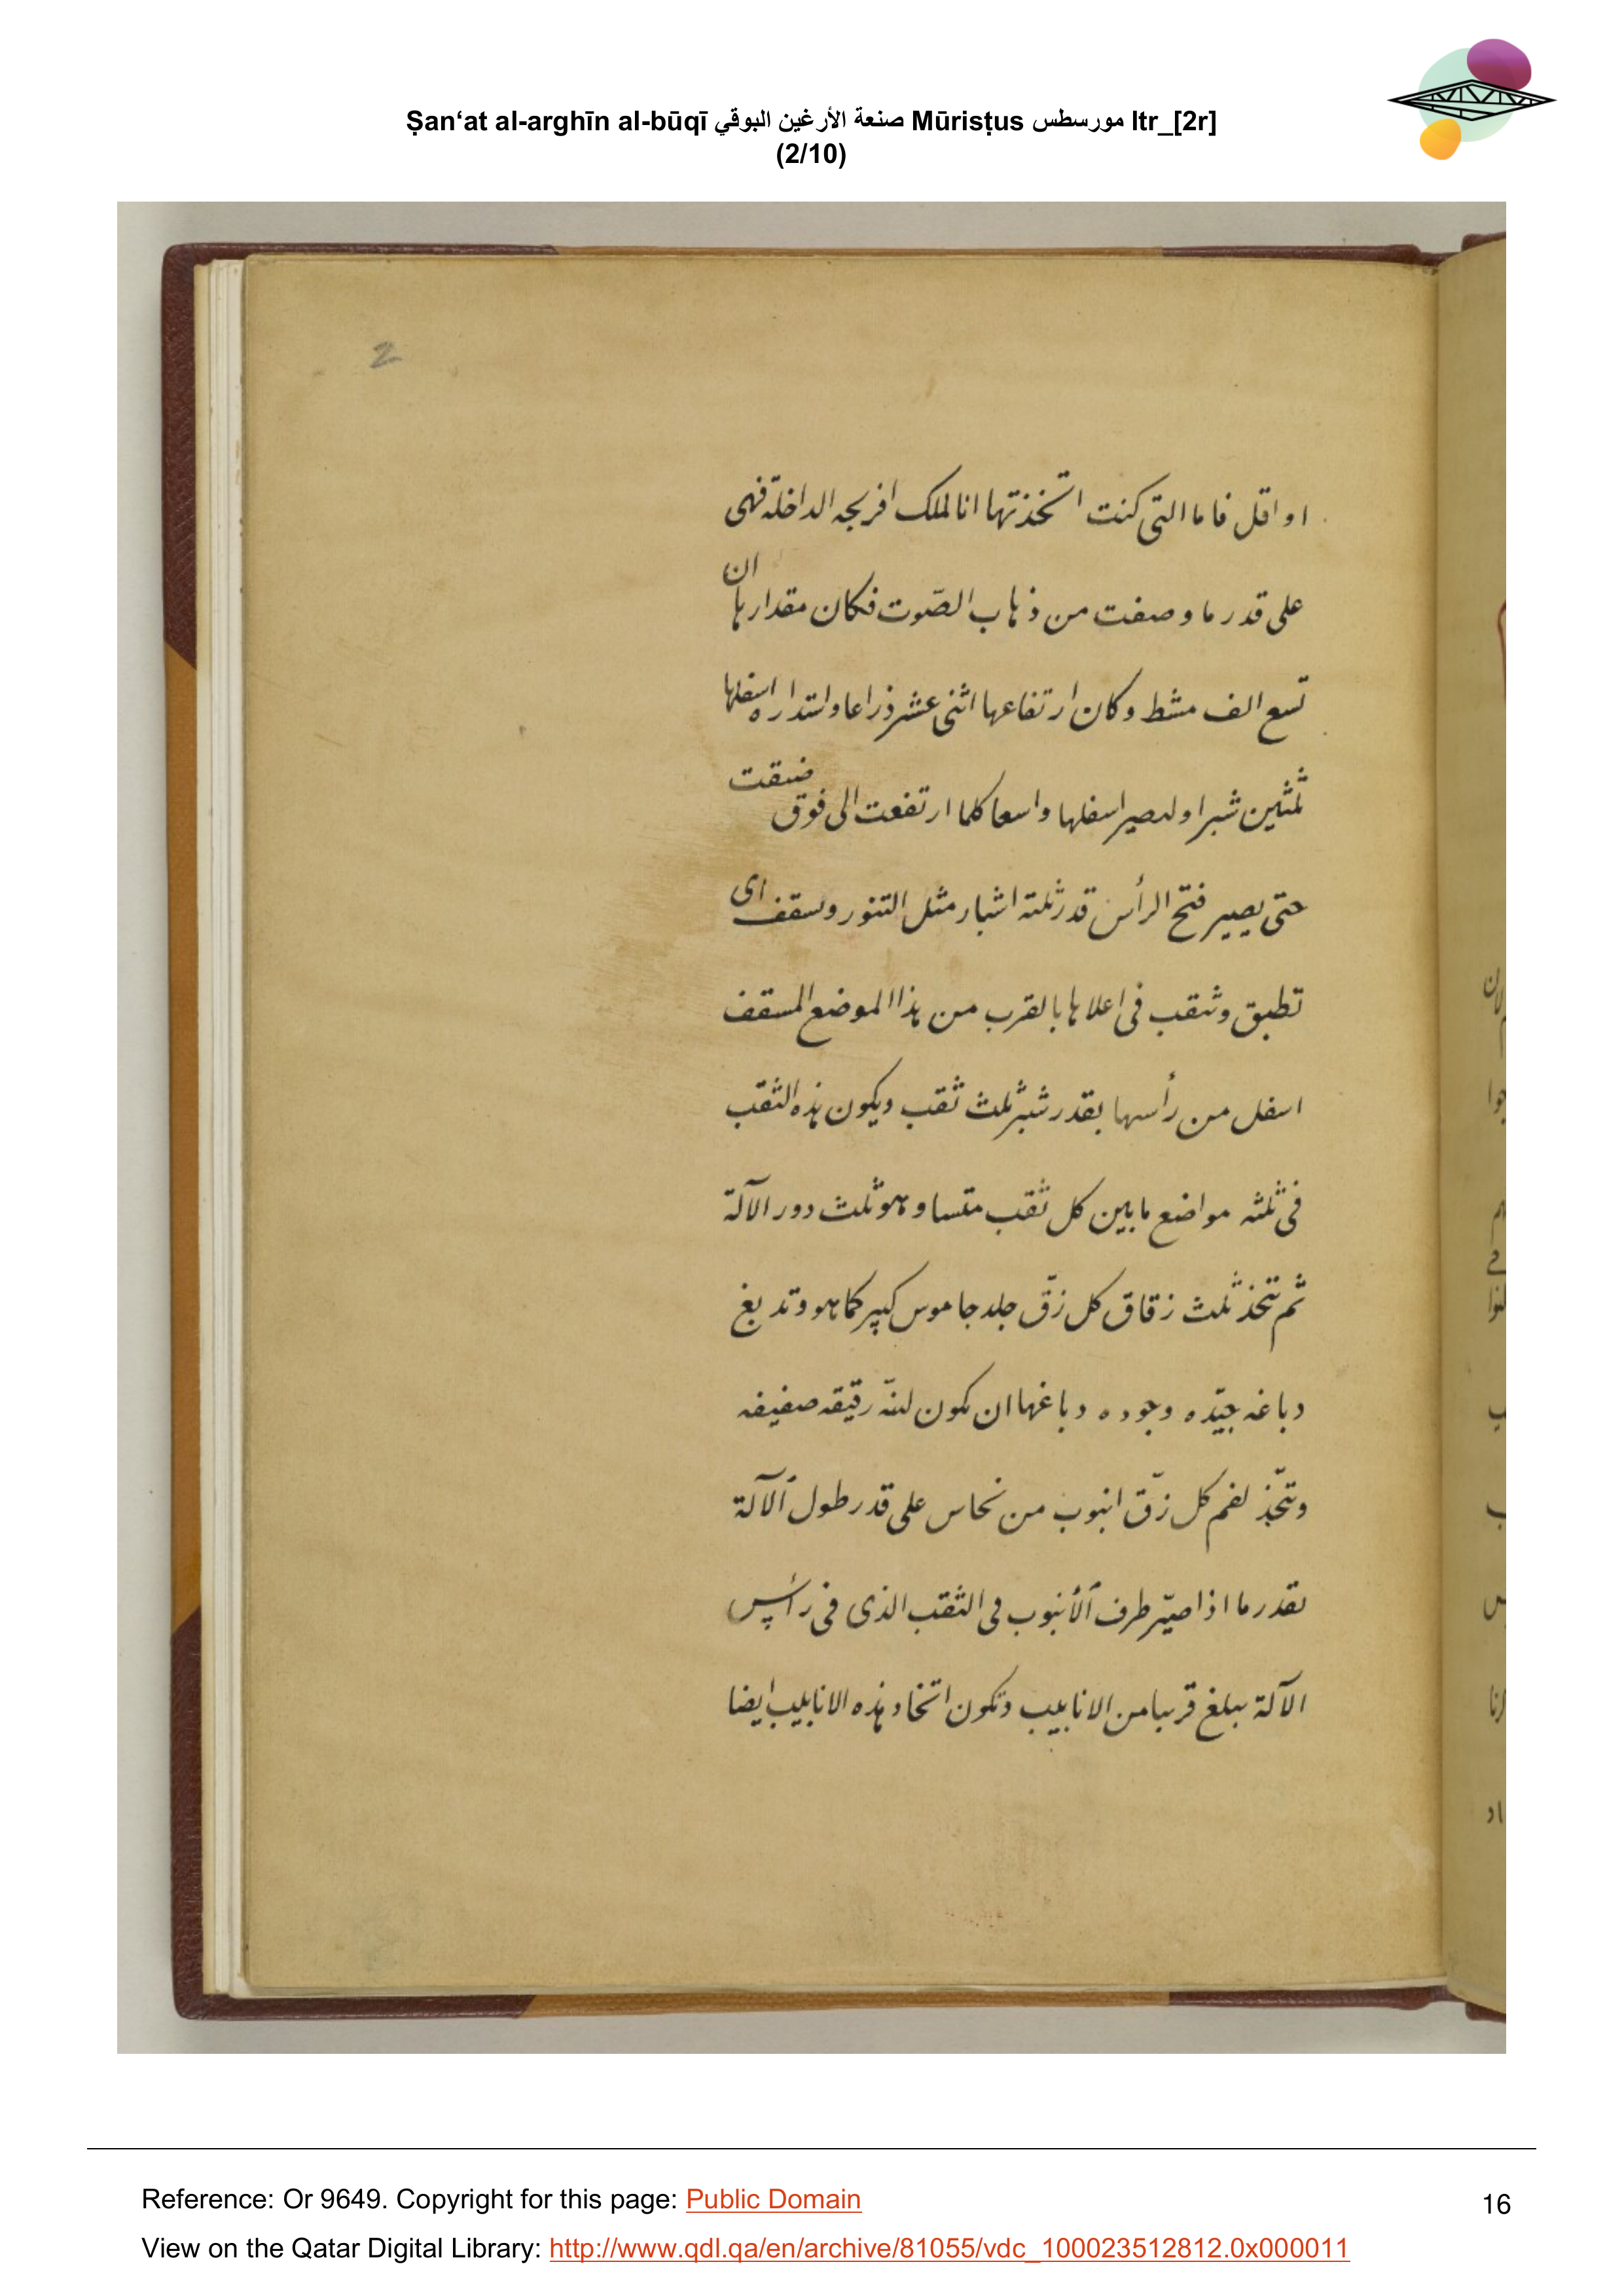 Ṣan‘at al-arghīn al-būqī صنعة الأرغين البوقي Mūrisṭus مورسطس ltr_[2r]
(2/10)
2
او اقل فاما التى كنت اتخذتها انا لملك افريجه الداخلة فهى
على قدر ما وصفت من ذهاب الصّوت فكان مقدارها ان
تسع الف مشط وكان ارتفاعها اثنى عشر ذراعا واستداره اسفلها
ثلثين شبرا وليصير اسفلها واسعا كلما ارتفعت الى فوق ضيقت
حتى يصير فتح الرأس قدر ثلثة اشبار مثل التنور وسقف اى
تطبق وثقب فى اعلاها بالقرب من هذا الموضع المسقف
اسفل من رأسها بقدر شبر ثلث ثقب ويكون هذه الثقب
فى ثلثه مواضع ما بين كل ثقب متساو وهو ثلث دور الآلة
ثم تتخذ ثلث زقاق كل زقّ جلد جاموس كبير كما هو وتدبغ
دباغه جيّده وجوده دباغها ان تكون لينّه رقيقه صفيفه
وتتّخذ لفم كل زقّ انبوب من نحاس على قدر طول الآلة
بقدر ما اذا صيّر طرف الأنبوب فى الثقب الذى فى رأس
الآلة يبلغ قريبا من الانابيب وتكون اتخاد هذه الانابيب ايضا
Reference: Or 9649. Copyright for this page: Public Domain
16
View on the Qatar Digital Library: http://www.qdl.qa/en/archive/81055/vdc_100023512812.0x000011